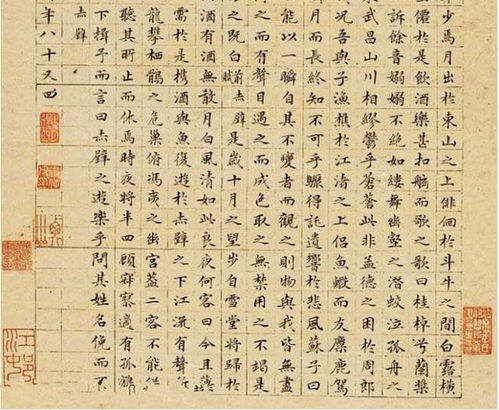 少焉月出於東山之上徘徊於斗牛之間白露橫
僊於是飲酒樂甚扣舷而歌之歌曰桂棹兮蘭槳
訴餘音嫋嫋不絕如縷舞幽壑之潛蛟泣孤舟之
武昌山川相繆鬱乎蒼蒼此非孟德之困於周郎
況吾與子漁樵於江渚之上侶魚蝦而友麋鹿駕
月而長終知不可乎驟得託遺響於悲風蘇子曰
能以一瞬自其不變者而觀之則物與我皆無盡
之而有聲目遇之而成色取之無禁用之不竭是
之既白 前赤壁賦 是歲十月之望步自雪堂將歸於
酒有酒無肴月白風清如此良夜何客曰今且薄
需於是攜酒與魚復遊於赤壁之下江流有聲
龍攀栖鶻之危巢俯馮夷之幽宮蓋二客不能
聽其所止而休焉時夜將半四顧寂寥適有孤
下揖予而言曰赤壁之遊樂乎問其姓名俛而不
赤壁
年八十又四